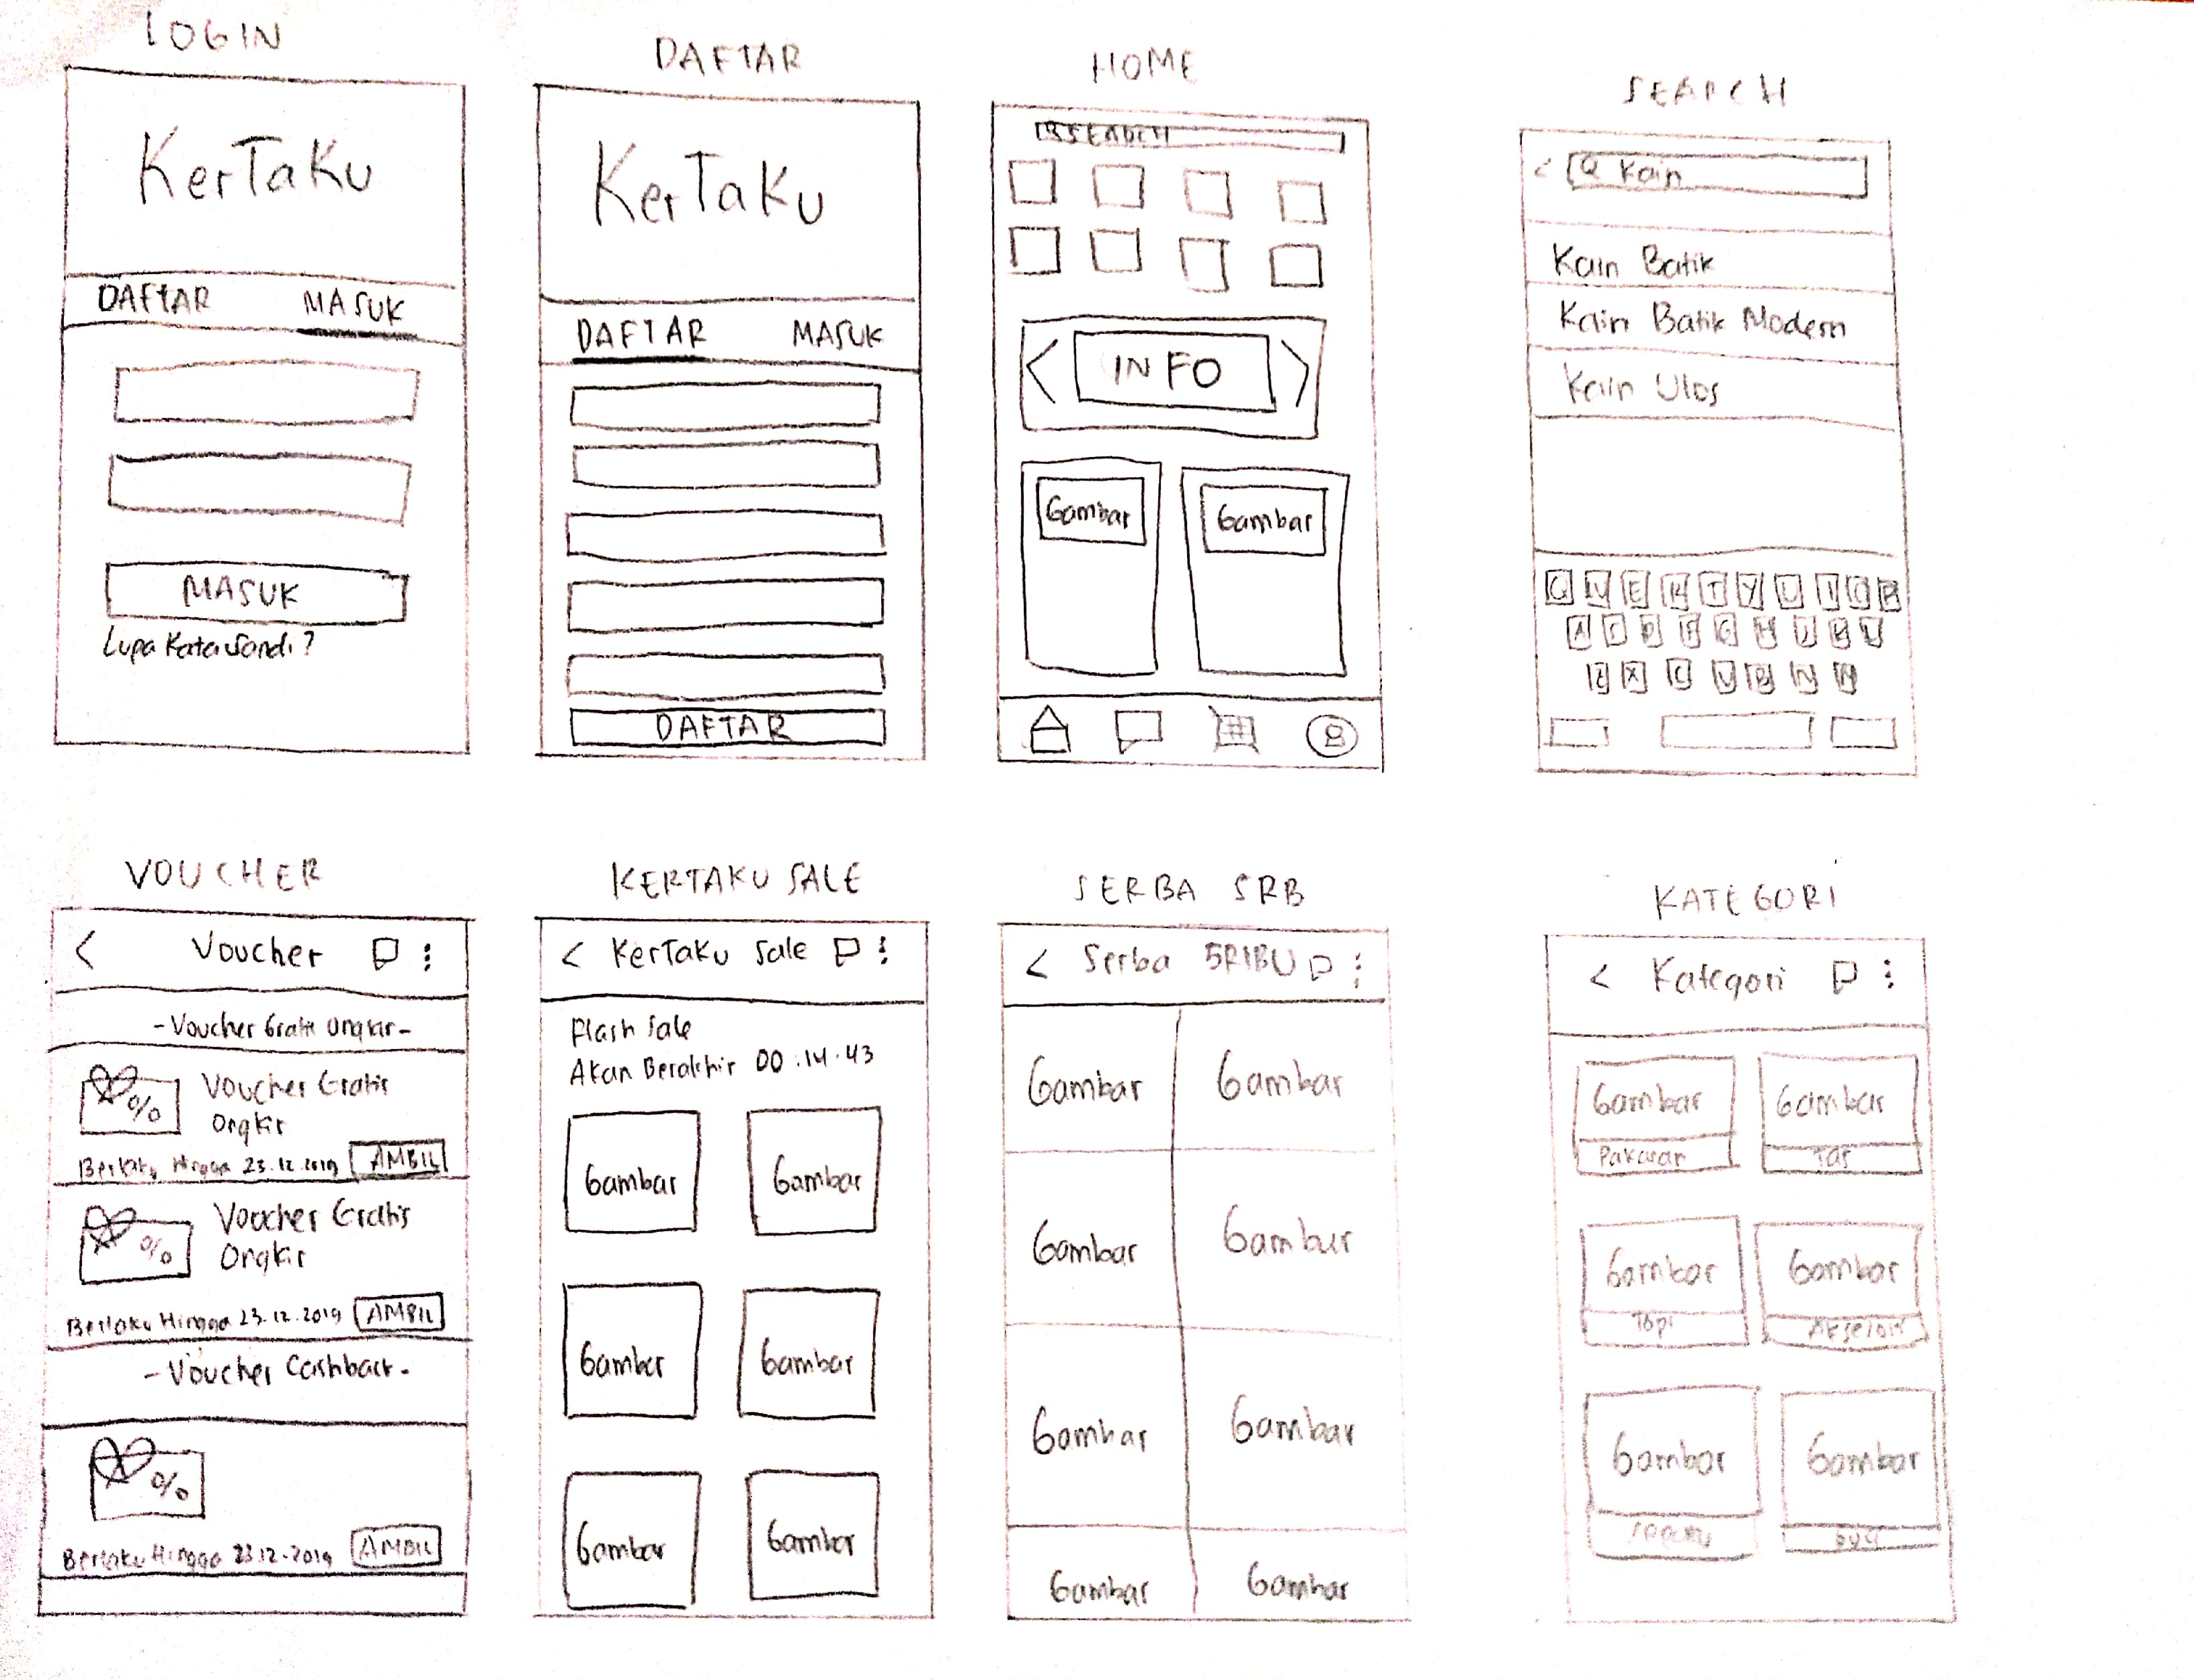 LOGIN
KerTaKu
DAFTAR MASUK
MASUK
Lupa Kata Sandi?
DAFTAR
KerTaKu
DAFTAR MASUK
DAFTAR
HOME
SEARCH
INFO
Gambar Gambar
SEARCH
Kain
Kain Batik
Kain Batik Modern
Kain Ulos
VOUCHER
< Voucher
-Voucher Gratis Ongkir-
% Voucher Gratis
Ongkir
Berlaku Hingga 23.12.2019 AMBIL
% Voucher Gratis
Ongkir
Berlaku Hingga 23.12.2019 AMBIL
-Voucher Cashback-
%
Berlaku Hingga 23.12.2019 AMBIL
KERTAKU SALE
< KerTaKu Sale
Flash Sale
Akan Berakhir 00.14.43
Gambar Gambar
Gambar Gambar
Gambar Gambar
SERBA 5RB
< Serba 5RIBU
Gambar Gambar
Gambar Gambar
Gambar Gambar
Gambar Gambar
KATEGORI
< Kategori
Gambar Gambar
Pakaian Tas
Gambar Gambar
Topi Aksesoris
Gambar Gambar